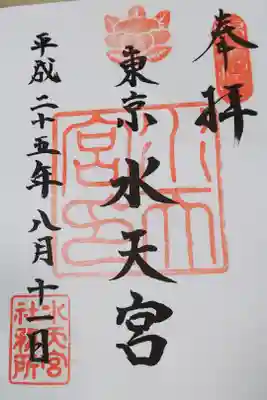 奉拝
東京水天宮
平成二十五年八月十一日
水天宮印
水天宮社務所